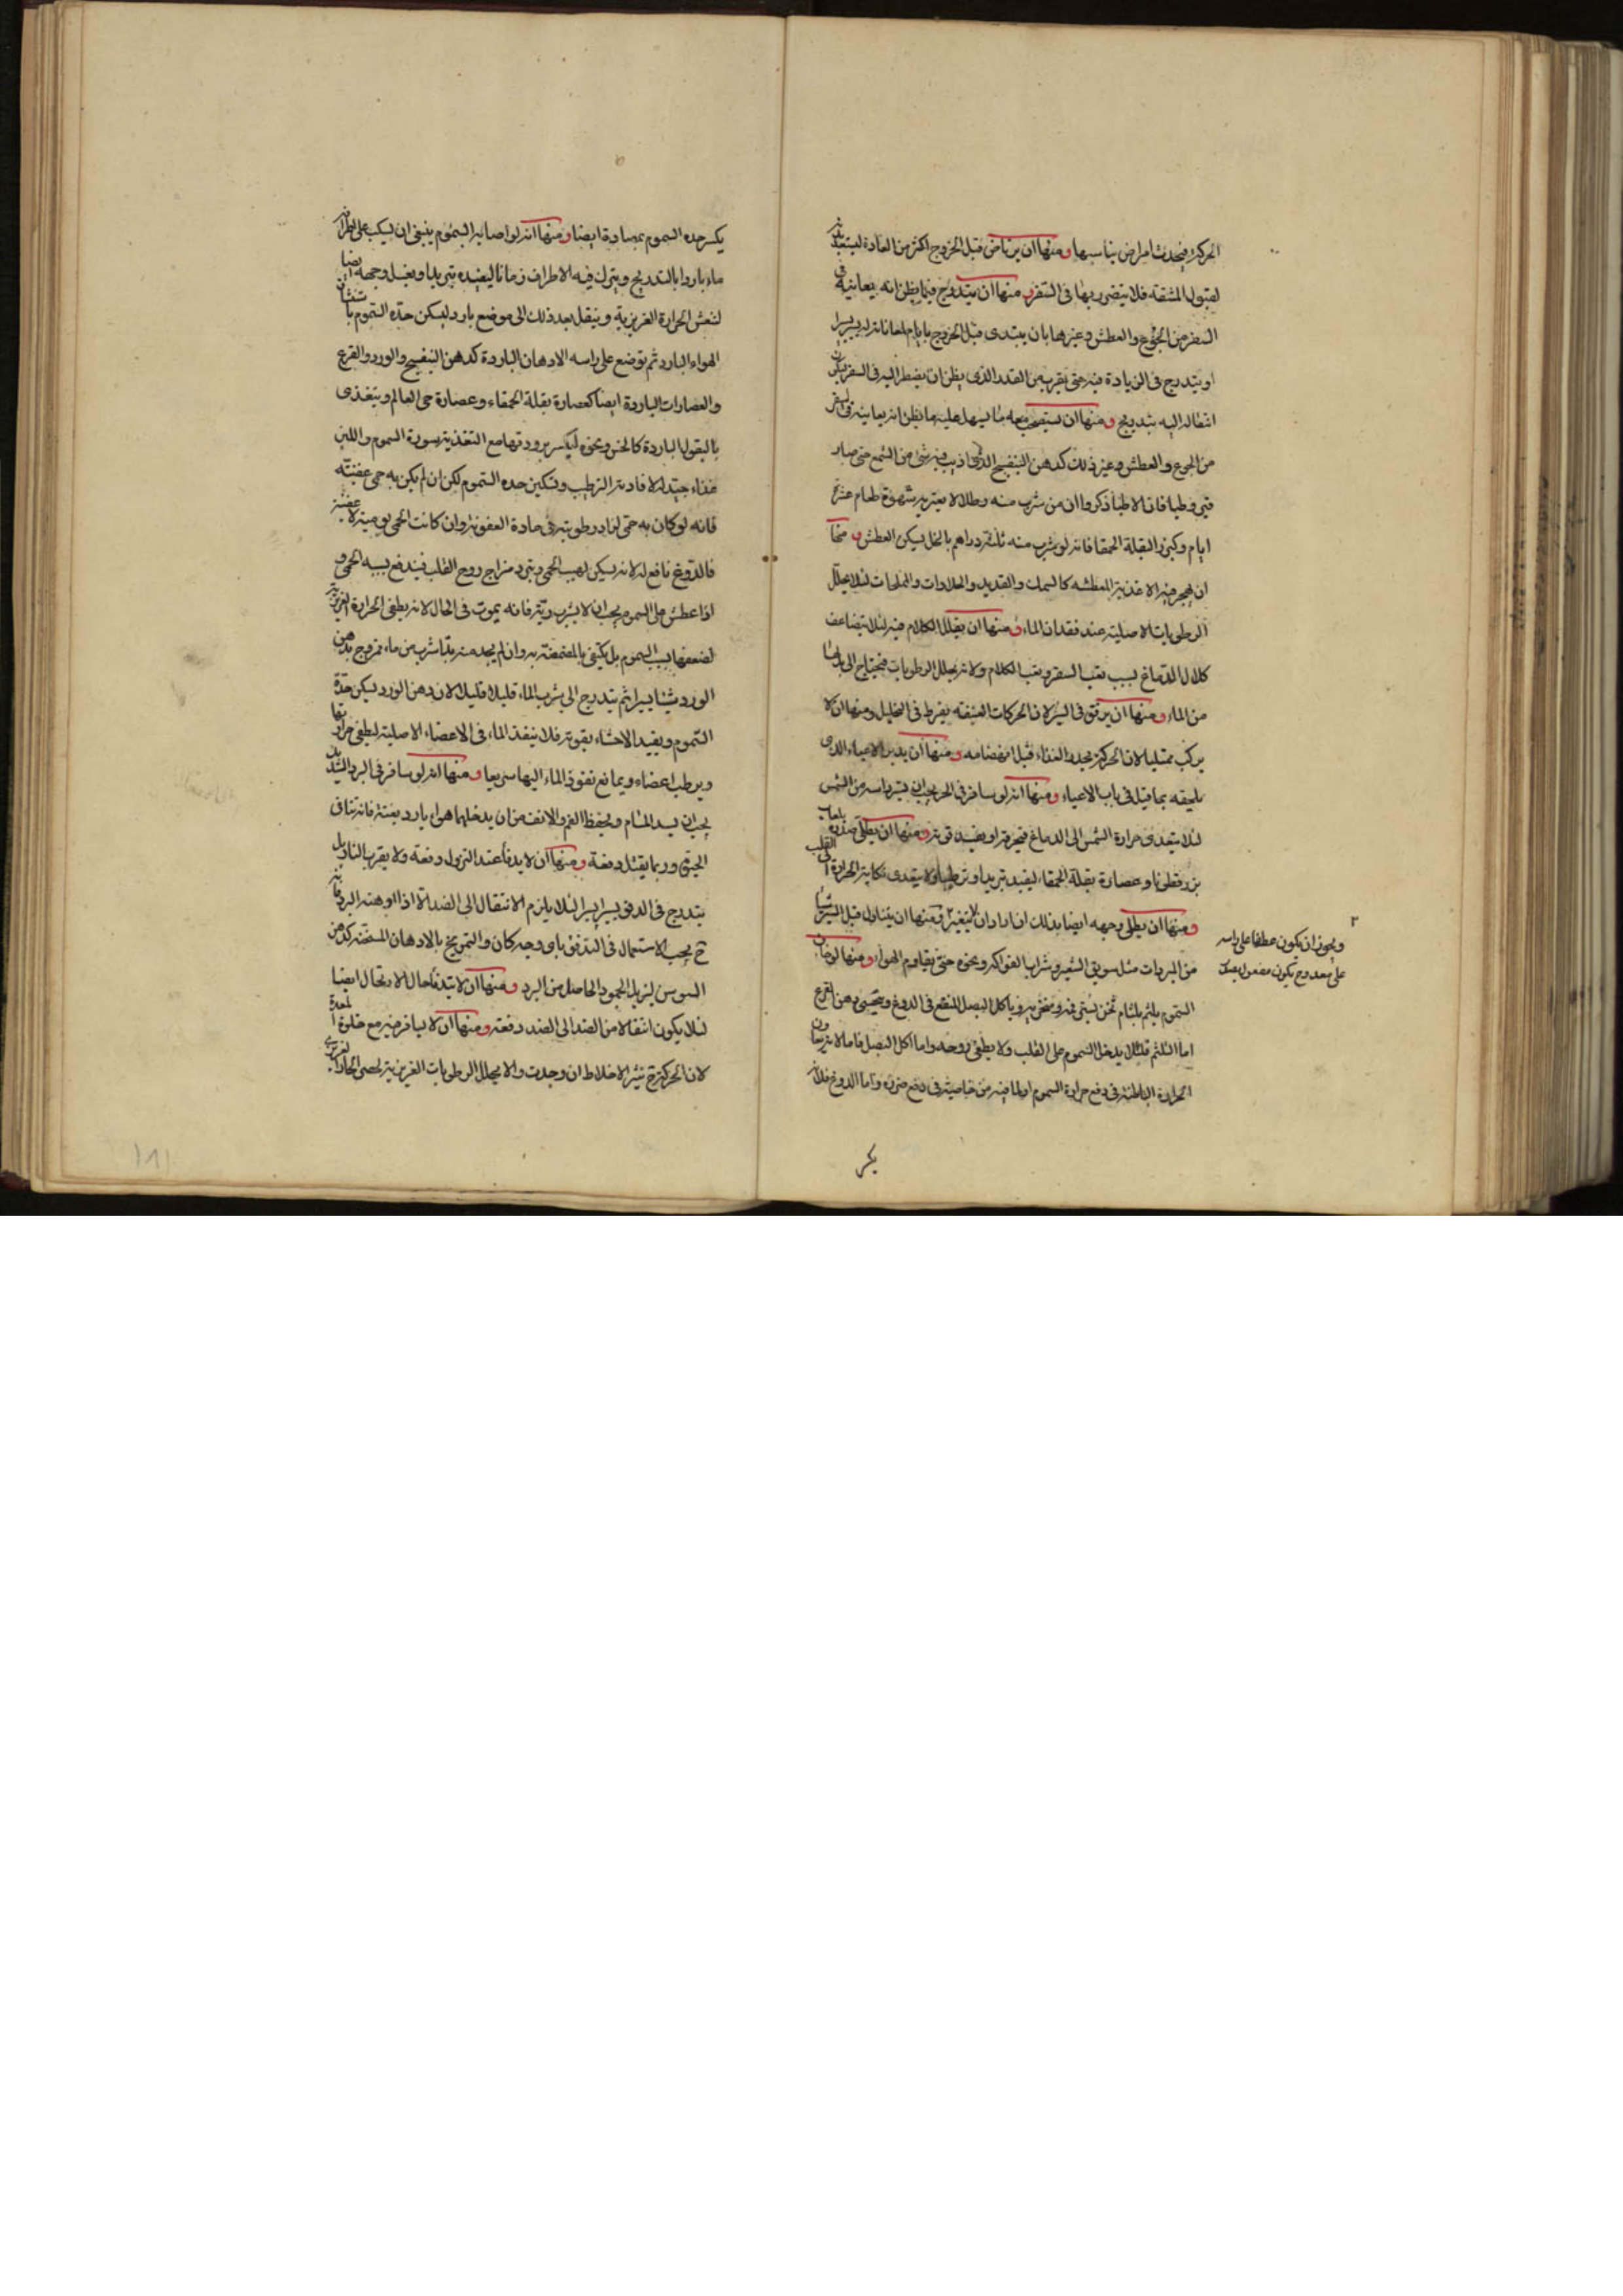 الحركة فيحدث امراض يناسبها ومنها ان يرتاض قبل الخروج اكثر من العادة ليستعد بدنه
لقبول المشقة فلا يتضرر بها فى السفر ومنها ان يتدرج فيما يظن انه يعانيه فى
السفر من الجوع والعطش وغيرها بان يبتدى قبل الخروج بايام لمعاناته يسيرا يسيرا
او يتدرج فى الزيادة فيه حتى يقرب من القدر الذى يظن ان يضطر اليه فى السفر ليكون
انتقاله اليه بتدريج ومنها ان يستصحب معه ما يسهل عليه ما يظن انه يعانيه فى السفر
من الجوع والعطش وغير ذلك كدهن البنفسج الذى اذيب فيه شئ من الشمع حتى صار
قيروطيا فان الاطبا ذكروا ان من شرب منه رطلا لا يعتريه شهوة طعام عشرة
ايام وكبزر البقلة الحمقا فانه لو شرب منه ثلثة دراهم بالخل يسكن العطش ومنها
ان يهجر فيه الاغذية المعطشه كالسمك والقديد والحلاوات والملحات لئلا يتحلل
الرطوبات الاصلية عند فقدان الماء ومنها ان يقلل الكلام فيه لئلا يتضاعف
كلال الدماغ بسبب تعب السفر وتعب الكلام ولانه يحلل الرطوبات فيحتاج الى بدلها
من الماء ومنها ان يرفق فى السير لان الحركات العنيفة يفرط فى التحليل ومنها ان لا
يركب ممتليا لان الحركة يحدر الغذاء قبل انهضامه ومنها ان يدبر الاعياء الذى
يلحقه بما قيل فى باب الاعياء ومنها انه لو سافر فى الحر يجب ان يستر راسه من الشمس
لئلا يتعدى حرارة الشمس الى الدماغ فيحرقه او يفسد قوته ومنها ان يطلى صدره بلعاب
بزرقطونا وعصارة بقلة الحمقاء ليفيد تبريدا وترطيبا ولا يتعدى نكاية الحرارة الى القلب
ومنها ان يطلى وجهه ايضا بذلك ان اراد ان لا يتغير ومنها ان يتناول قبل السير شيئا
من المبردات مثل سويق الشعير وشراب الفواكه ونحوه حتى يقاوم الهواء ومنها لو خاف
السموم يلثم بلثام ثخن يستر فمه ومنخريه وياكل البصل المنقع فى الدوغ ويتحسى دهن القرع
اما التلثم فلئلا يدخل السموم على القلب ولا يطفى روحه واما اكل البصل فاما لانه يعاون
الحرارة الباطنة فى دفع حرارة السموم او لما فيه من خاصية فى دفع ضرره واما الدوغ فلانه
ويجوز ان يكون عطفا على راسه
يكسر حدة السموم بمضادة ايضا ومنها انه لو اصابه السموم ينبغى ان يسكب على اطرافه
ماء باردا بالتدريج ويترك فيه الاطراف زمانا ليفيده تبريدا ويغسل وجهه ايضا
لتنعش الحرارة الغريزية وينقل بعد ذلك الى موضع بارد ليسكن حدة السموم باستنشاق
الهواء البارد ثم توضع على راسه الادهان الباردة كدهن البنفسج والورد والقرع
والعصارات الباردة ايضا كعصارة بقلة الحمقاء وعصارة حى العالم ويتغذى
بالبقول الباردة كالخس ونحوه ليكسر برودتها مع التغذية سورة السموم واللبن
غذاء جيد له لافادته الترطيب وتسكين حدة السموم لكن ان لم يكن به حمى عفنية
فانه لو كان به حمى لزاد رطوبته فى مادة العفونة وان كانت الحمى يومية لا عفنية
فالدوغ نافع له لانه يسكن لهيب الحمى ويبرد مزاج روح القلب فيندفع بسببه الحمى و
اذا عطش على السموم يجب ان لا يشرب ريه فانه يموت فى الحال لانه يطفى الحرارة الغريزية
لضعفها بسبب السموم بل يكتفى بالمضمضة به وان لم يجد منه بدا شرب من ماء ممزوج بدهن
الورد شيئا يسيرا ثم يتدرج الى شرب الماء قليلا قليلا لان دهن الورد يسكن حدة
السموم ويفيد الاحشاء بقوته فلا ينفذ الماء فى الاعضاء الاصلية ليطفى حرارتها
ويرطب اعضاء ويمانع نفوذ الماء اليها سريعا ومنها انه لو سافر فى البرد الشديد
يجب ان يسد المسام ويحفظ الفم والانف من ان يدخلهما هواء بارد بغتة فانه تنافى
الحيوة وربما يقتل دفعة ومنها ان لا يدفأ عند النزول دفعة ولا يقرب النار بل
يتدرج فى الدفو يسيرا يسيرا لئلا يلزم الانتقال الى الضد الا اذا اوهنه البرد فانه
ح يجب الاستعمال فى التدفى باى وجه كان والتمريخ بالادهان المسخنة كدهن
السوسن ليزيل الجمود الحاصل من البرد ومنها ان لا يتدفأ حال الارتحال ايضا
لئلا يكون انتقالا من الضد الى الضد دفعة ومنها ان لا يسافر فيه مع خلو المعدة
لان الحركة ح تثير الاخلاط ان وجدت والا يحلل الرطوبات الغريزية